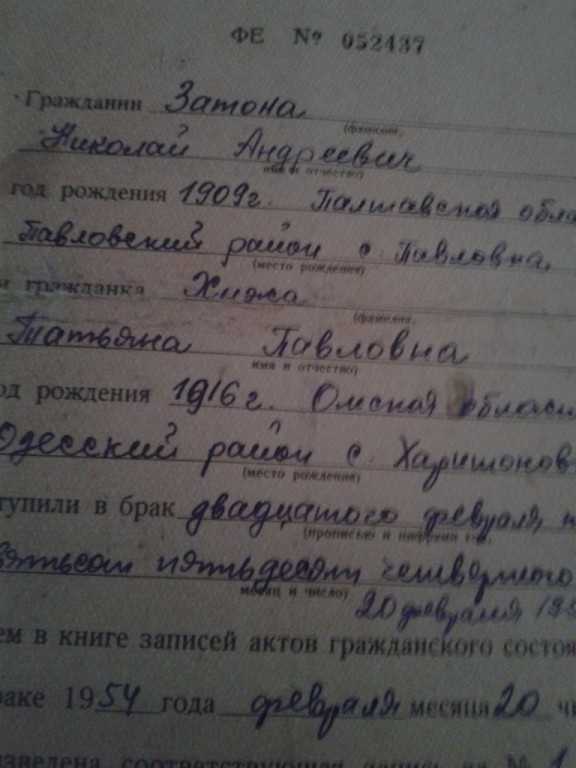 ФЕ № 052437
Гражданин Затона
(фамилия,
Николай Андреевич
имя и отчество)
год рождения 1909 г. Палтавская обла
Павловский район с. Павловна,
(место рождения)
и гражданка Хижа
(фамилия,
Татьяна Павловна
имя и отчество)
од рождения 1916 г. Омская област
Одесский район с. Харитонов
(место рождения)
тупили в брак двадцатого февраля
(прописью и цифрами год,
вятьсот пятьдесят четвертого
месяц и число)
20 февраля 195
ем в книге записей актов гражданского состоя
раке 1954 года февраля месяца 20 чи
изведена соответствующая запись за № 1